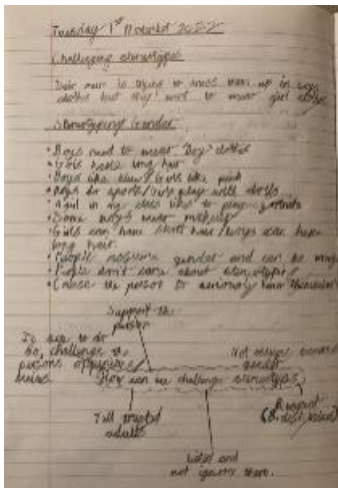 Tuesday 1st November 2022
Challenging stereotypes
Their mum is trying to dress them up in boys
clothes but they want to wear girl clothes.
Stereotyping Gender
• Boys need to wear 'boy' clothes
• Girls have long hair
• Boys like blue / Girls like pink
• Boys do sports / Girls play with dolls
• A girl in my class likes to play sports
• Some boys wear makeup
• Girls can have short hair / boys can have
long hair.
• People assume gender and can be wrong
• People don't care about stereotypes
• Cause the person to seriously harm themselves
Support the
person
challenge the
persons
Not assume someones
gender
How can we challenge stereotypes
Tell trusted
adults
Respect
Listen and
not ignore them.